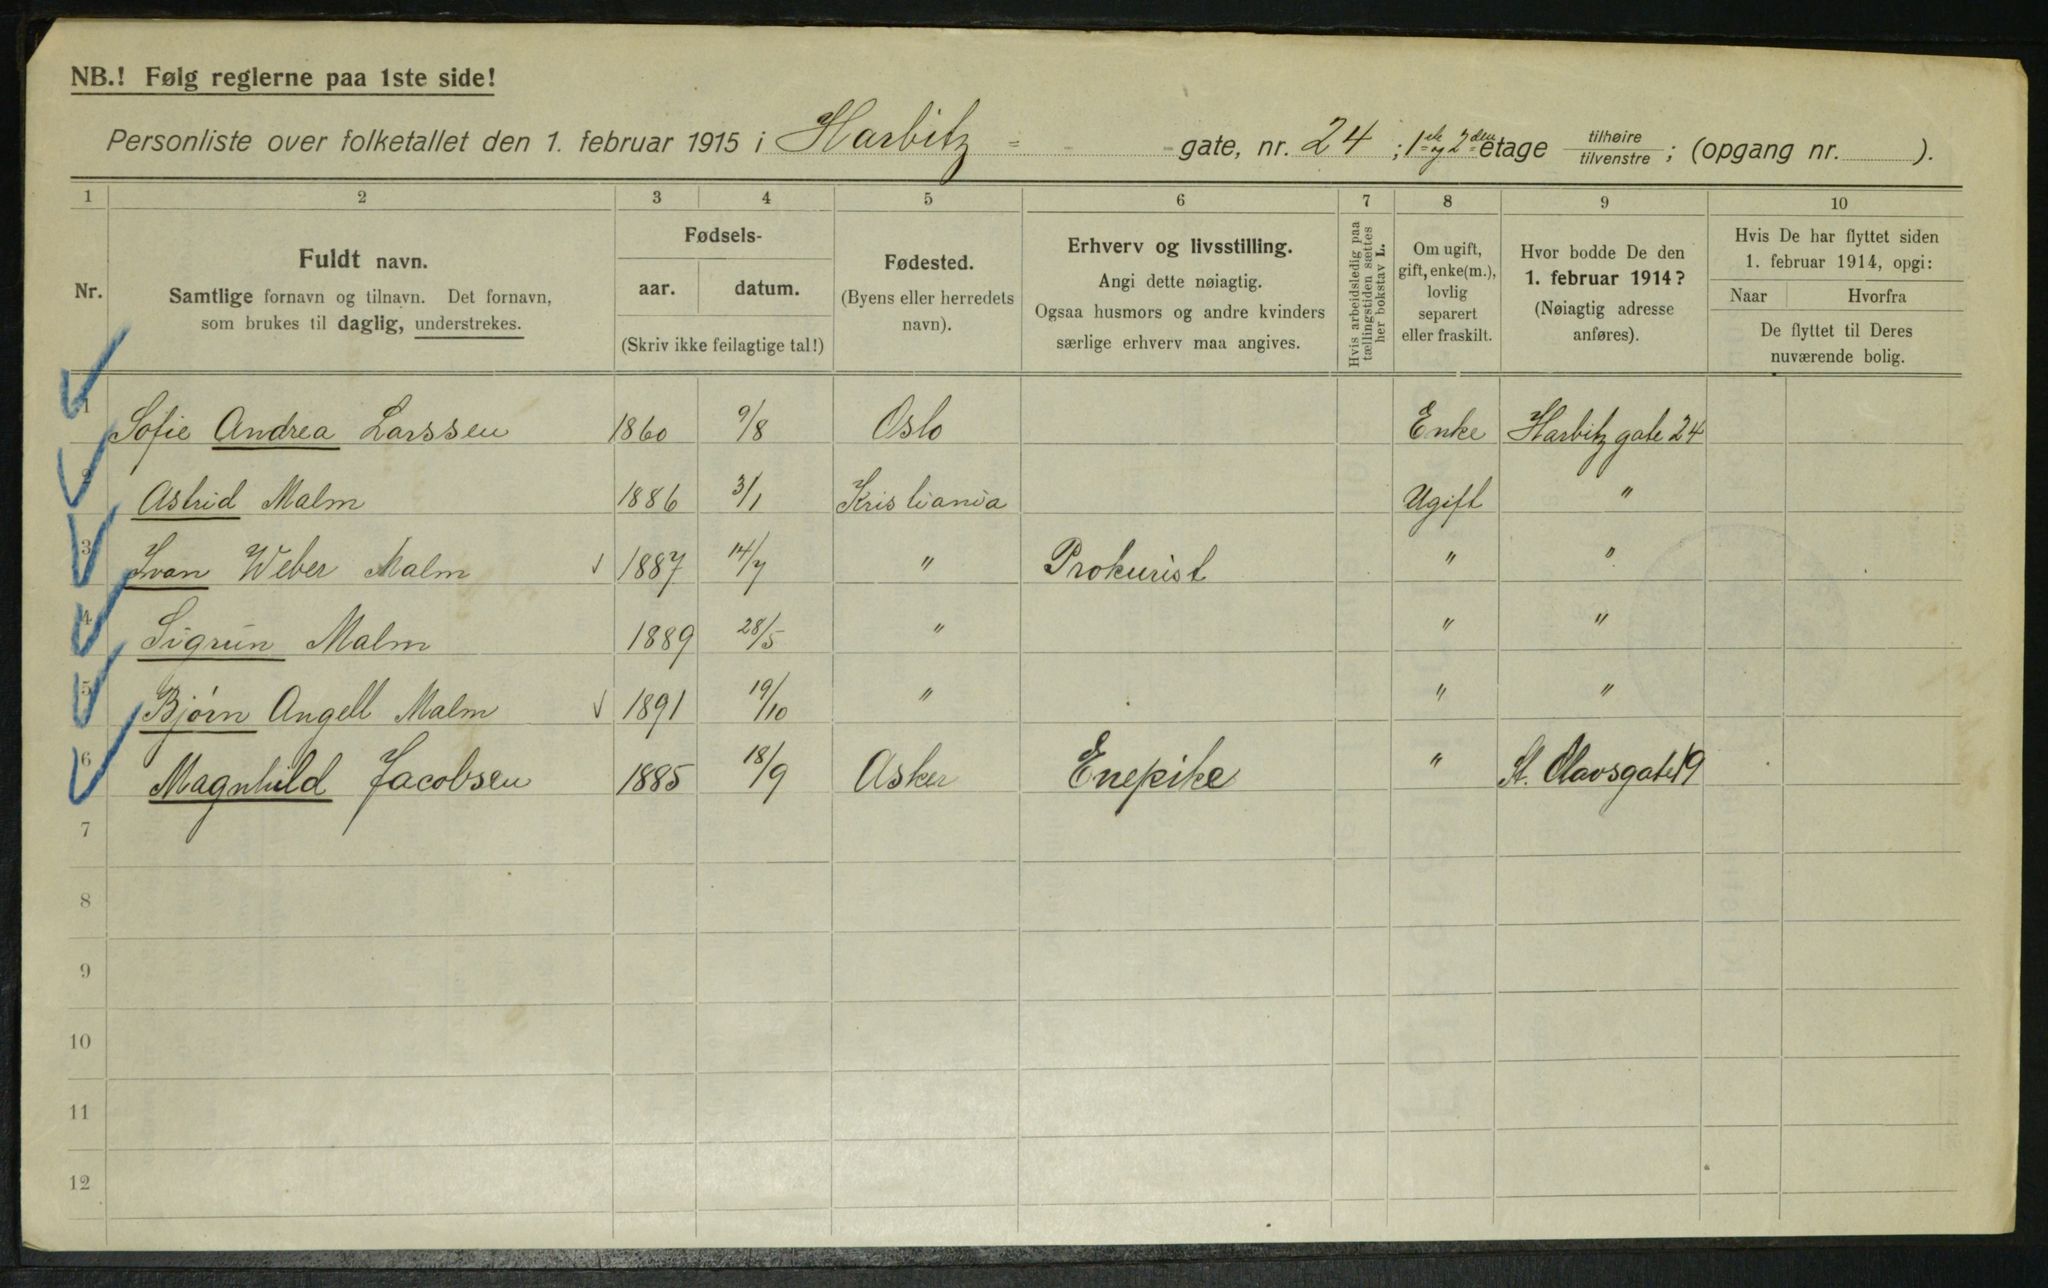 NB.! Følg reglerne paa 1ste side!
Personliste over folketallet den 1. februar 1915 i Harbitz = - - gate, nr. 24 ; 1ste og 2den etage tilhøire / tilvenstre ; (opgang nr. ).
1 2 3 4 5 6 7 8 9 10
Nr.
Fuldt navn.
Samtlige fornavn og tilnavn. Det fornavn,
som brukes til daglig, understrekes.
Fødsels-
aar. datum.
(Skriv ikke feilagtige tal!)
Fødested.
(Byens eller herredets
navn).
Erhverv og livsstilling.
Angi dette nøiagtig.
Ogsaa husmors og andre kvinders
særlige erhverv maa angives.
Hvis arbeidsledig paa
tællingstiden sættes
her bokstav L.
Om ugift,
gift, enke(m.),
lovlig
separert
eller fraskilt.
Hvor bodde De den
1. februar 1914?
(Nøiagtig adresse
anføres).
Hvis De har flyttet siden
1. februar 1914, opgi:
Naar Hvorfra
De flyttet til Deres
nuværende bolig.
1 Sofie Andrea Larssen 1860 9/8 Oslo Enke Harbitzgate 24
2 Astrid Malm 1886 3/1 Kristiania Ugift "
3 Ivan Weber Malm 1887 14/7 " Prokurist " "
4 Sigrun Malm 1889 28/5 " " "
5 Bjørn Angell Malm 1891 19/10 " " "
6 Magnhild Jacobsen 1885 18/9 Asker Enepike " St. Olavsgate 19
7
8
9
10
11
12